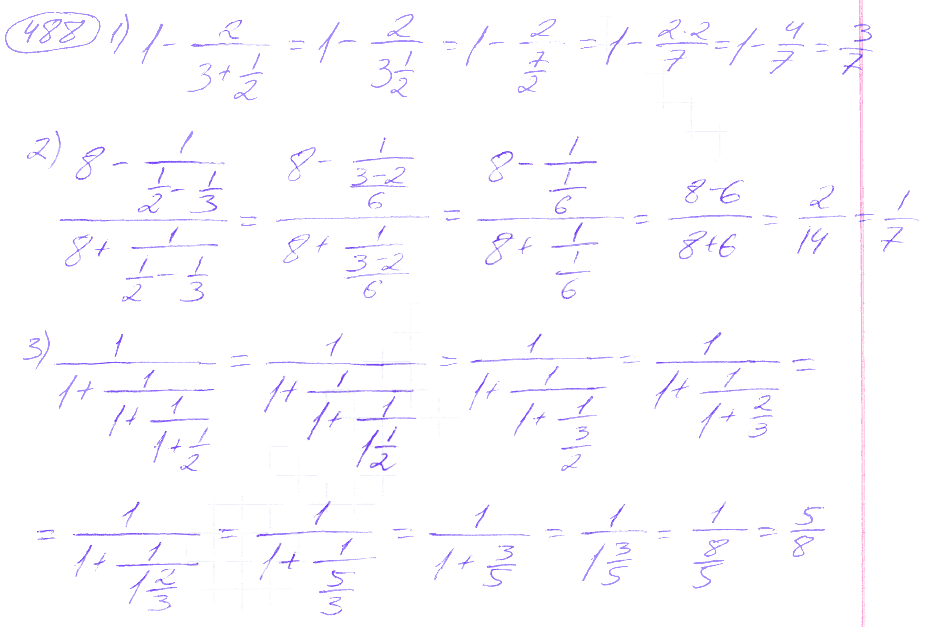 488 1) 1 - 2/(3 + 1/2) = 1 - 2/(3 1/2) = 1 - 2/(7/2) = 1 - (2·2)/7 = 1 - 4/7 = 3/7
2) (8 - 1/(1/2 - 1/3))/(8 + 1/(1/2 - 1/3)) = (8 - 1/((3-2)/6))/(8 + 1/((3-2)/6)) = (8 - 1/(1/6))/(8 + 1/(1/6)) = (8-6)/(8+6) = 2/14 = 1/7
3) 1/(1 + 1/(1 + 1/(1 + 1/2))) = 1/(1 + 1/(1 + 1/(1 1/2))) = 1/(1 + 1/(1 + 1/(3/2))) = 1/(1 + 1/(1 + 2/3)) =
= 1/(1 + 1/(1 2/3)) = 1/(1 + 1/(5/3)) = 1/(1 + 3/5) = 1/(1 3/5) = 1/(8/5) = 5/8